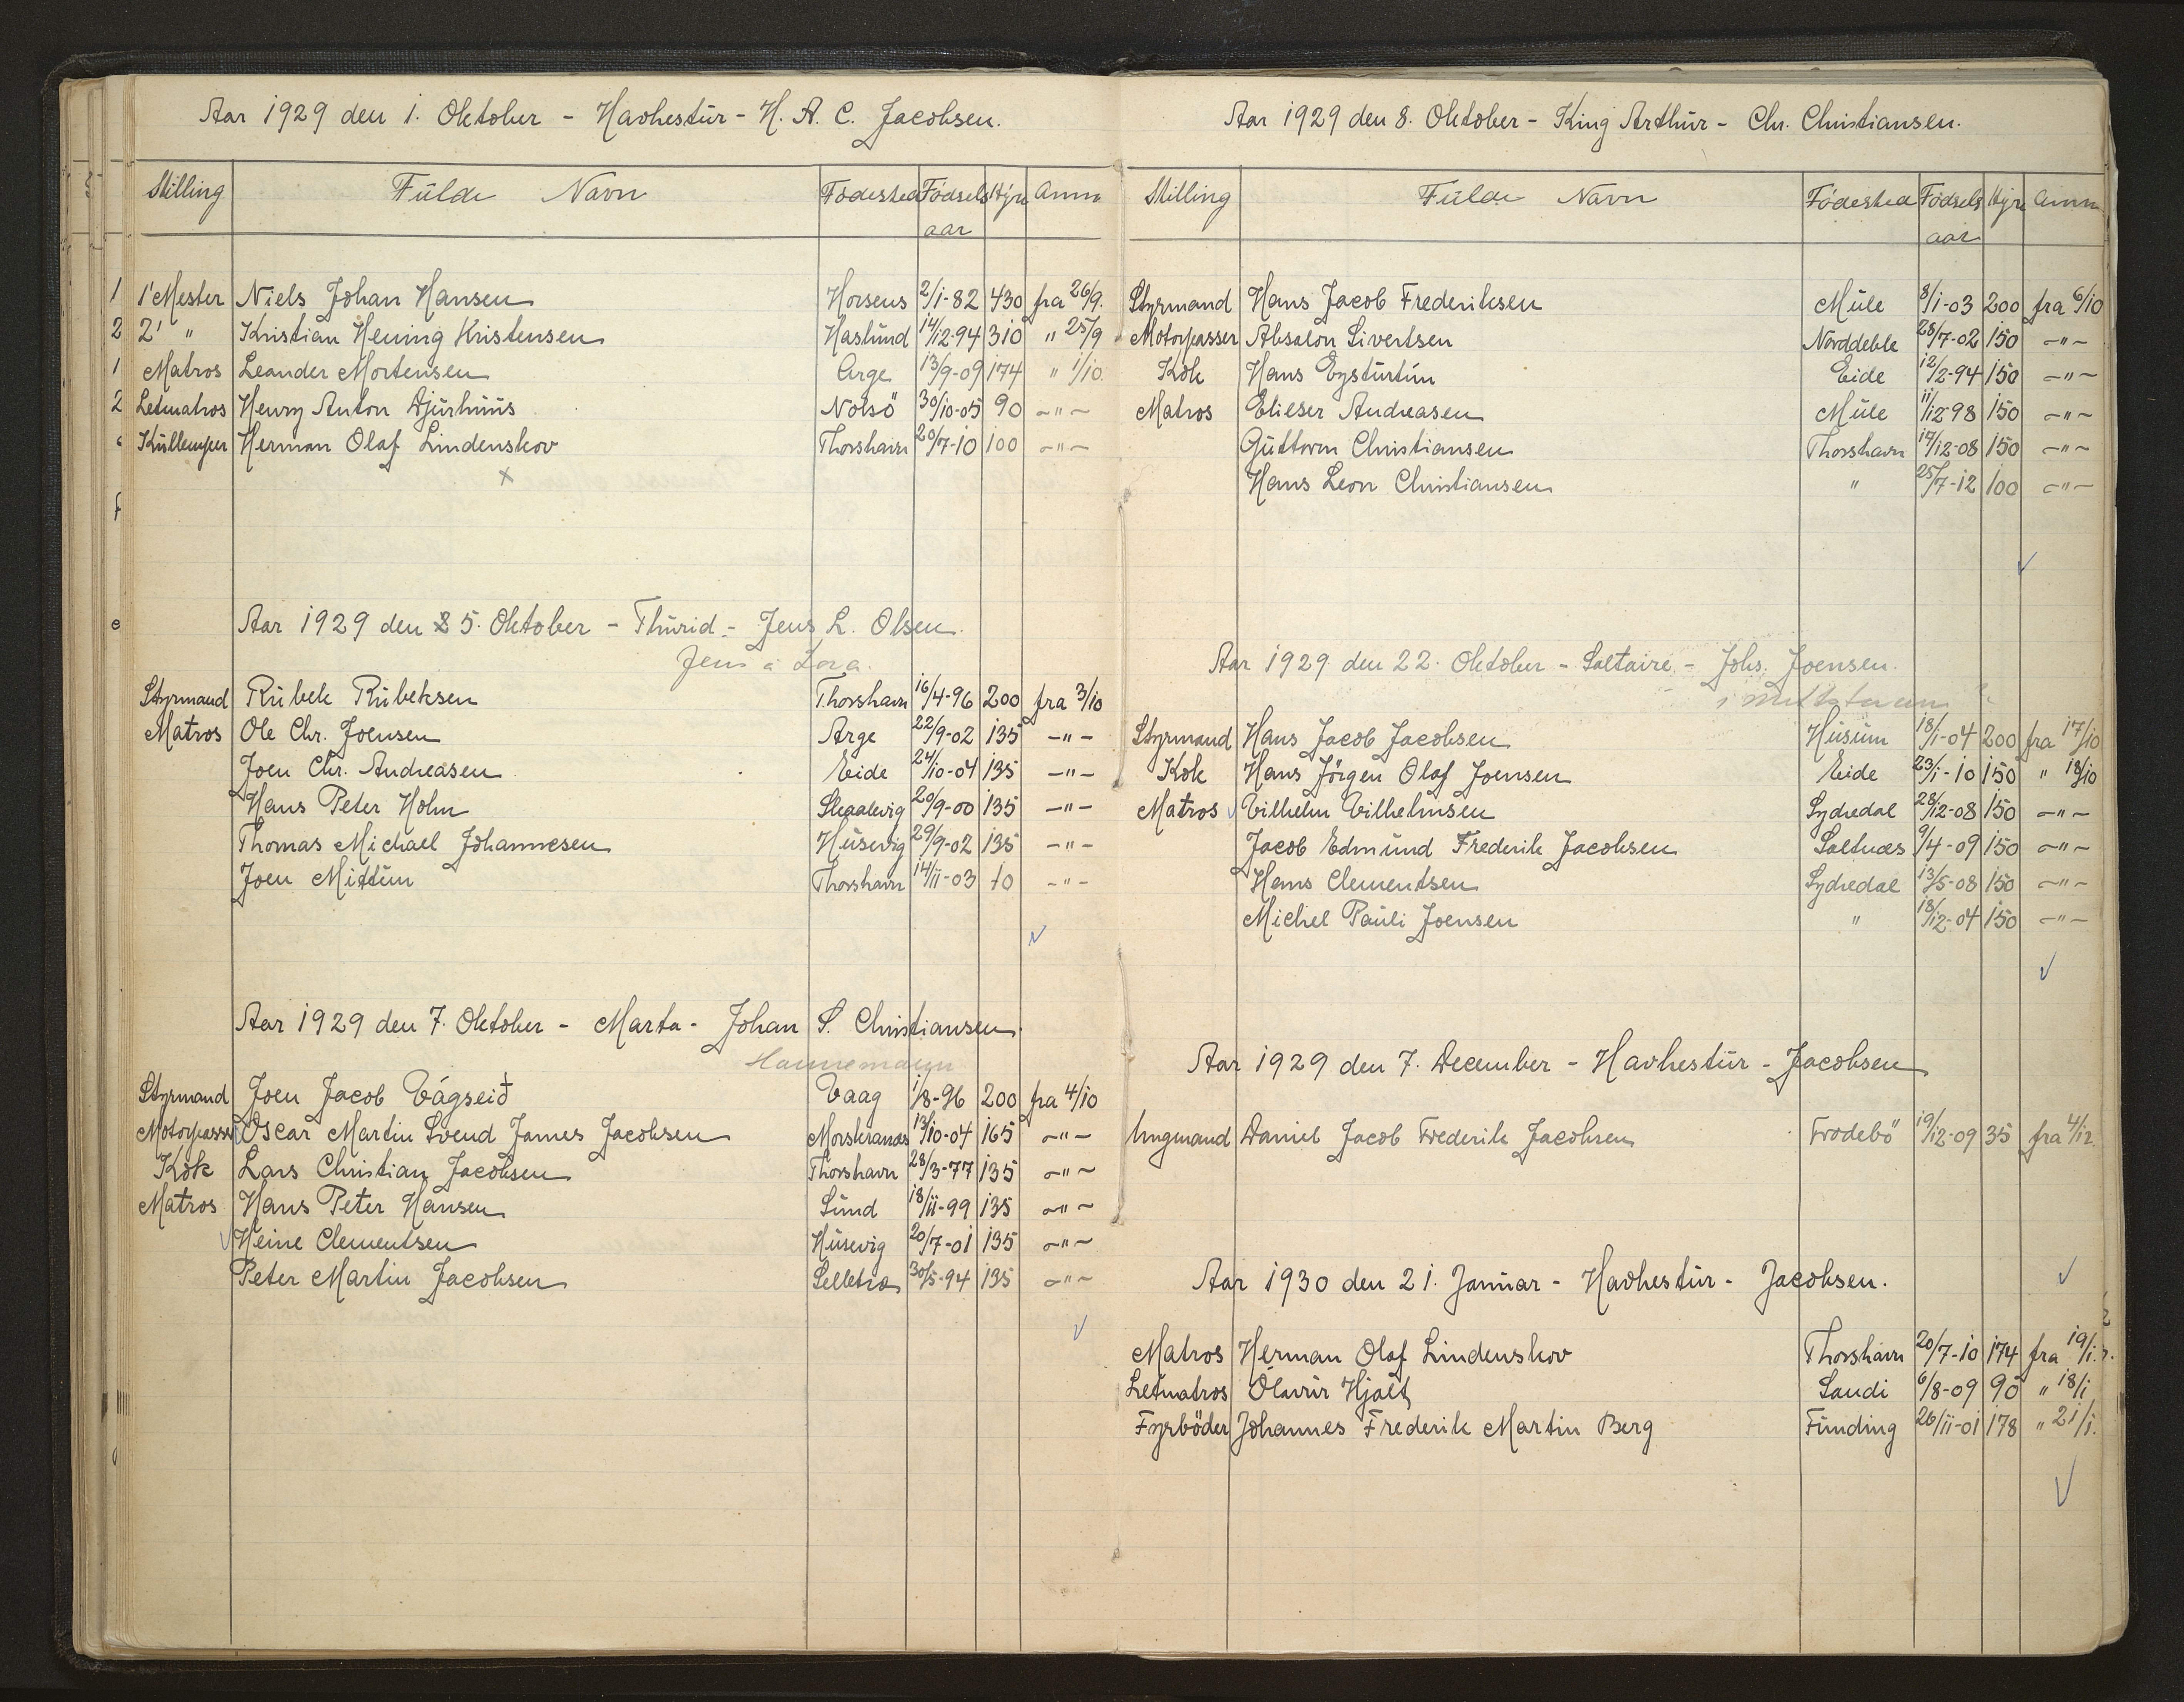 Aar 1929 den 1. Oktober - Havhestur - H. A. C. Jacobsen.
Stilling Fulde Navn Fødested Fødsels aar Hyre Anm
1 1' Mester Niels Johan Hansen Horsens 2/1-82 430 fra 26/9.
2 2' " Kristian Hening Kristensen Haslund 14/12-94 310 " 25/9
1 Matros Leander Mortensen Arge 13/9-09 174 " 1/10.
2 Letmatros Henry Anton Djurhuus Nolsö 30/10-05 90 -"-
Kullemper Herman Olaf Lindenskov Thorshavn 20/7-10 100 -"-
x
Aar 1929 den 25. Oktober - Thurid - Jens L. Olsen.
Jens á
Styrmand Rubek Rubeksen Thorshavn 16/4-96 200 fra 3/10
Matros Ole Chr. Joensen Arge 22/9-02 135 -"-
Joen Chr. Andreasen Eide 24/10-04 135 -"-
Hans Peter Holm Skaalevig 20/9-00 135 -"-
Thomas Michael Johannesen Husevig 29/9-02 135 -"-
Joen Mittun Thorshavn 14/11-03 70 -"-
Aar 1929 den 7. Oktober - Marta - Johan S. Christiansen.
Hannemann
Styrmand Joen Jacob Vágseið Vaag 1/8-96 200 fra 4/10
Motorpasser Oscar Martin Svend James Jacobsen Morskranæs 13/10-04 165 -"-
Kok Lars Christian Jacobsen Thorshavn 28/3-77 135 -"-
Matros Hans Peter Hansen Sund 18/11-99 135 -"-
Heine Clementsen Husevig 20/7-01 135 -"-
Peter Martin Jacobsen Selletræ 30/5-94 135 -"-
Aar 1929 den 8. Oktober - King Arthur - Chr. Christiansen.
Stilling Fulde Navn Fødested Fødsels aar Hyre Anm
Styrmand Hans Jacob Frederiksen Mule 8/1-03 200 fra 6/10
Motorpasser Absalon Sivertsen Norddeble 28/7-02 150 -"-
Kok Hans Eysturtun Eide 12/2-94 150 -"-
Matros Elieser Andreasen Mule 11/12-98 150 -"-
Guttorm Christiansen Thorshavn 17/12-08 150 -"-
Hans Leon Christiansen " 25/7-12 100 -"-
Aar 1929 den 22. Oktober - Saltaire - Johs. Joensen.
Styrmand Hans Jacob Jacobsen Husum 18/1-04 200 fra 17/10
Kok Hans Jörgen Olaf Joensen Eide 23/1-10 150 " 18/10
Matros Vilhelm Vilhelmsen Sydredal 28/12-08 150 -"-
Jacob Edmund Frederik Jacobsen Saltnæs 9/4-09 150 -"-
Hans Clementsen Sydredal 13/5-08 150 -"-
Michel Pauli Joensen " 18/12-04 150 -"-
Aar 1929 den 7. December - Havhestur - Jacobsen
Ungmand Daniel Jacob Frederik Jacobsen Frodebö 19/12-09 35 fra 4/12.
Aar 1930 den 21. Januar - Havhestur - Jacobsen.
Matros Herman Olaf Lindenskov Thorshavn 20/7-10 174 fra 19/1.
Letmatros Ólavur Hjalt Sandi 6/8-09 90 " 18/1
Fyrböder Johannes Frederik Martin Berg Funding 26/11-01 178 " 21/1.